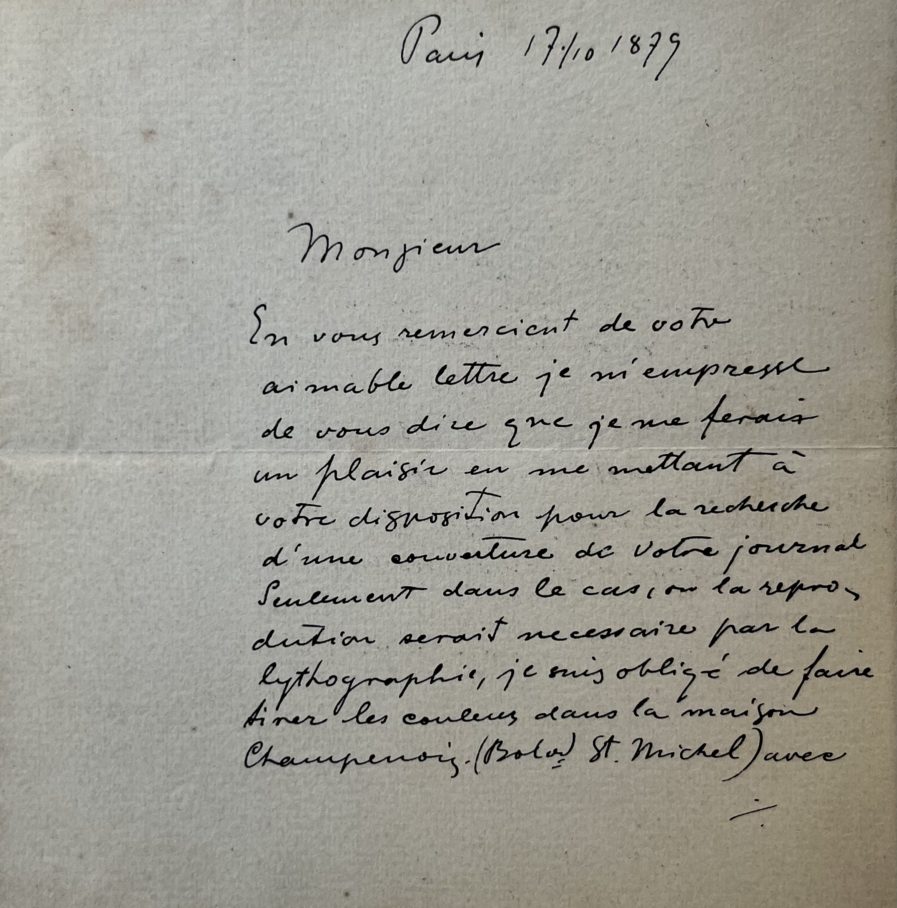 Paris 17./10 1879
Monsieur
En vous remerciant de votre
aimable lettre je m'empresse
de vous dire que je me ferais
un plaisir en me mettant à
votre disposition pour la recherche
d'une couverture de votre journal
Seulement dans le cas, ou la repro-
dution serait necessaire par la
lythographie, je suis obligé de faire
tirer les couleurs dans la maison
Champenois. (Bolvd St. Michel) avec